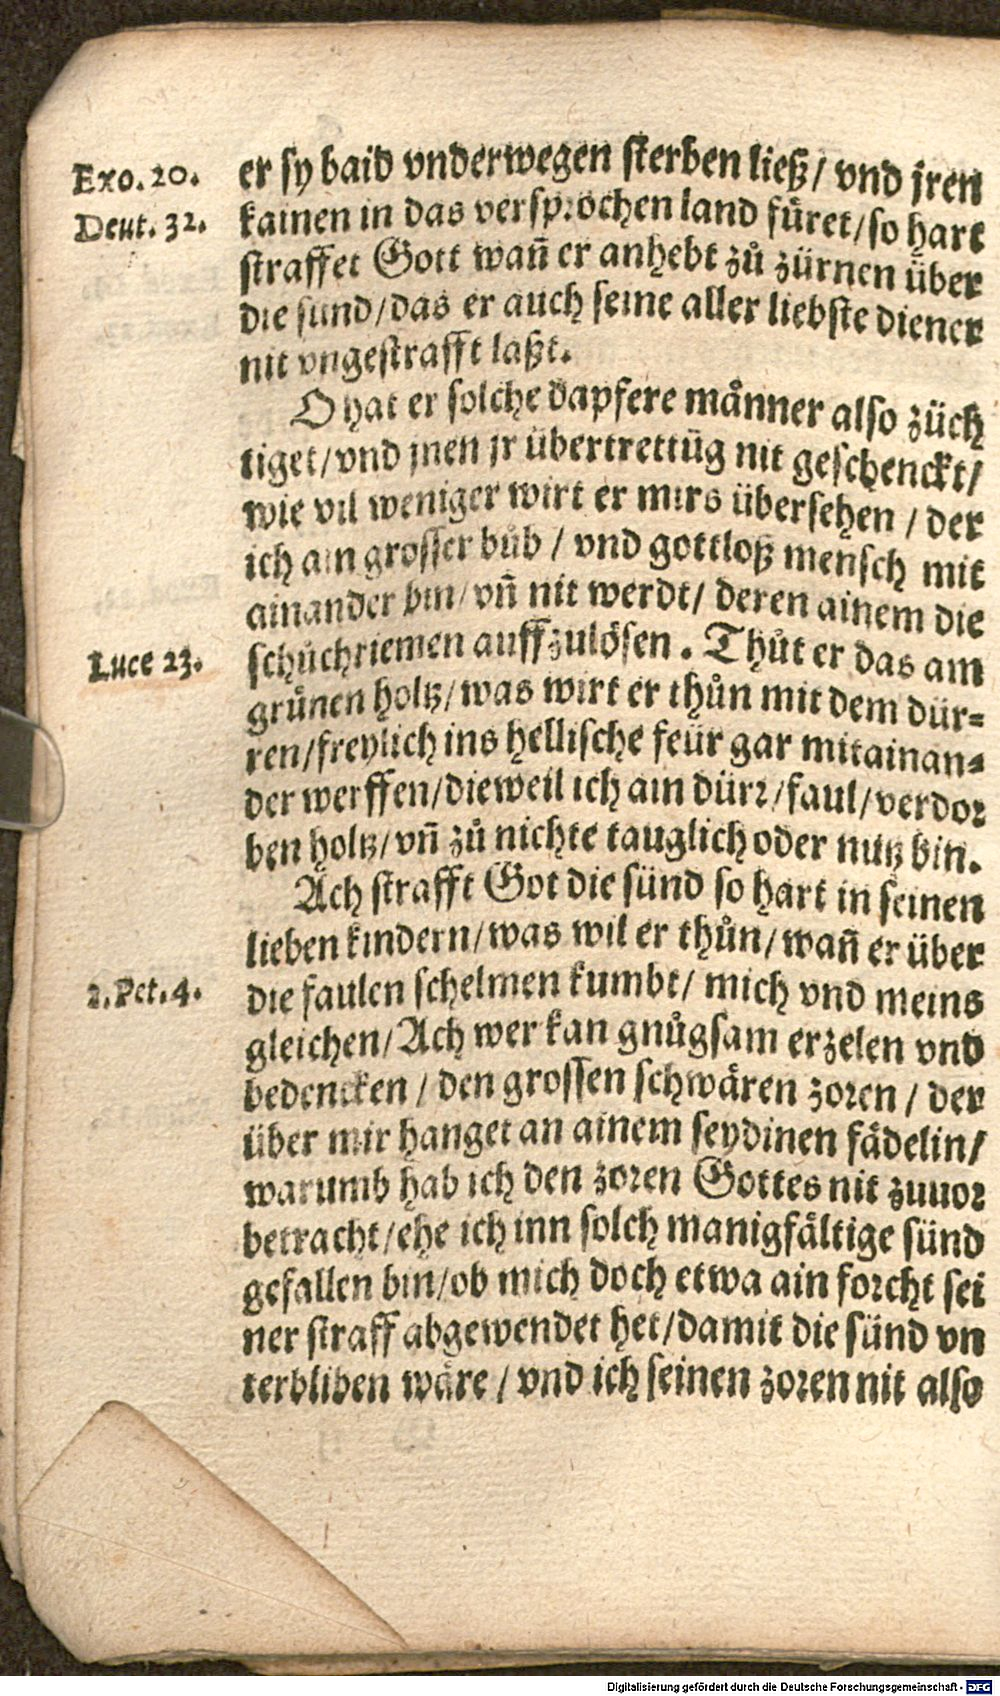 Exo. 20.
Deut. 32.
er sy baid vnderwegen sterben ließ/ vnd jren
kainen in das versprochen land fuͤret/so hart
straffet Gott wañ er anhebt zuͦ zürnen über
die sünd/das er auch seine aller liebste diener
nit vngestrafft laßt.
O hat er solche dapfere maͤnner also züch
tiget/vnd jnen jr übertrettũg nit geschenckt/
wie vil weniger wirt er mirs übersehen / der
ich ain grosser buͦb / vnd gottloß mensch mit
ainander bin/vñ nit werdt/ deren ainem die
schuͦchriemen auffzulösen. Thuͦt er das am
Luce 23.
gruͤnen holtz/was wirt er thuͦn mit dem dür-
ren/freylich ins hellische feür gar mitainan-
der werffen/dieweil ich ain dürr/faul/verdor
ben holtz/vñ zuͦ nichte tauglich oder nutz bin.
Ach strafft Got die sünd so hart in seinen
lieben kindern/was wil er thuͦn/wañ er über
1. Pet. 4.
die faulen schelmen kumbt/ mich vnd meins
gleichen/Ach wer kan gnuͦgsam erzelen vnd
bedencken / den grossen schwaͤren zoren / der
über mir hanget an ainem seydinen faͤdelin/
warumb hab ich den zoren Gottes nit zuuor
betracht/ehe ich inn solch manigfaͤltige sünd
gefallen bin/ob mich doch etwa ain forcht sei
ner straff abgewendet het/damit die sünd vn
terbliben waͤre / vnd ich seinen zoren nit also
Digitalisierung gefördert durch die Deutsche Forschungsgemeinschaft - DFG